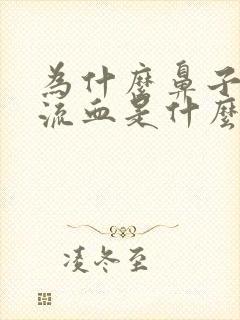 為什麼鼻子
流血是什麼
凌冬至